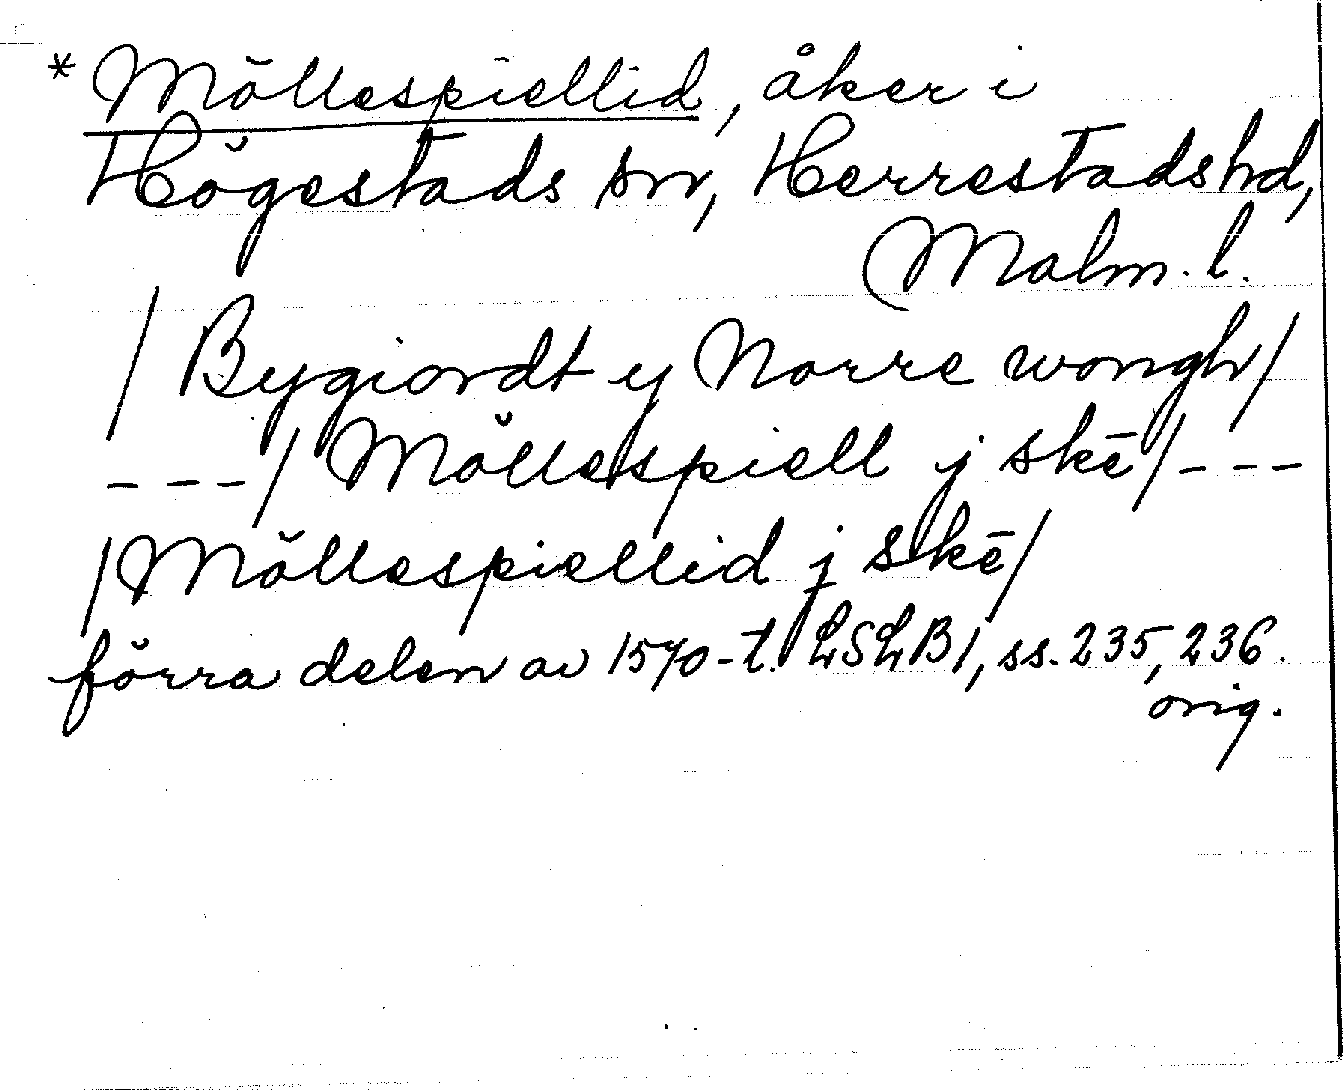 *Möllespiellid, åker i
Högestads sn, Herrestads hd,
Malm. l.
/ Bygiordt y Norre wongh/
---/ Möllespiell j skē/---
/Möllespiellid j skē/
förra delen av 1570-t. LSLB1, ss. 235, 236.
orig.